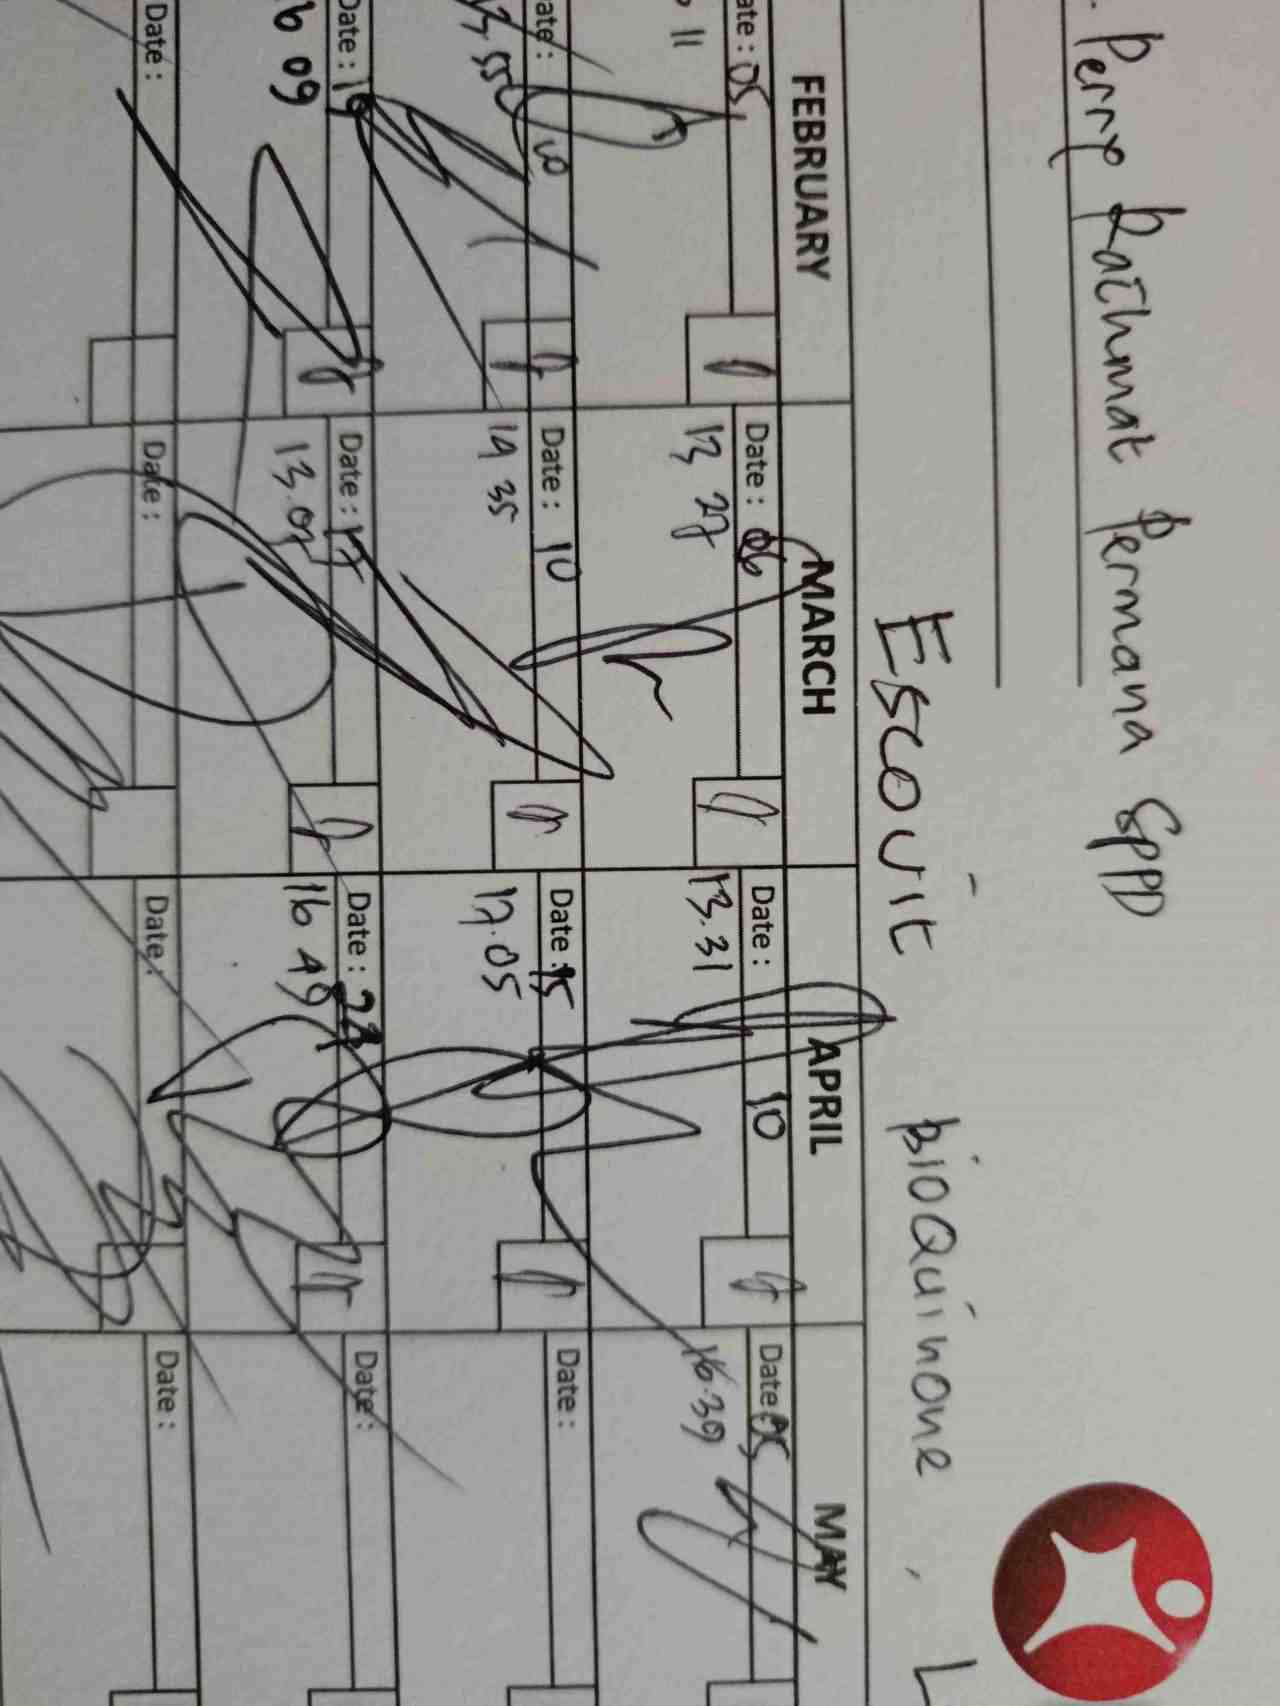 Perry Rachmat Permana SPPD
Escovit bioquinone,
FEBRUARY MARCH APRIL MAY
Date: 05 Date: 06 Date: 10 Date: 05
11 13 27 13.31 16.39
Date: 10 Date: 10 Date: 15 Date:
13 55 14 35 17.05
Date: 19 Date: 17 Date: 22 Date:
16 09 13.07 16 49
Date: Date: Date: Date: